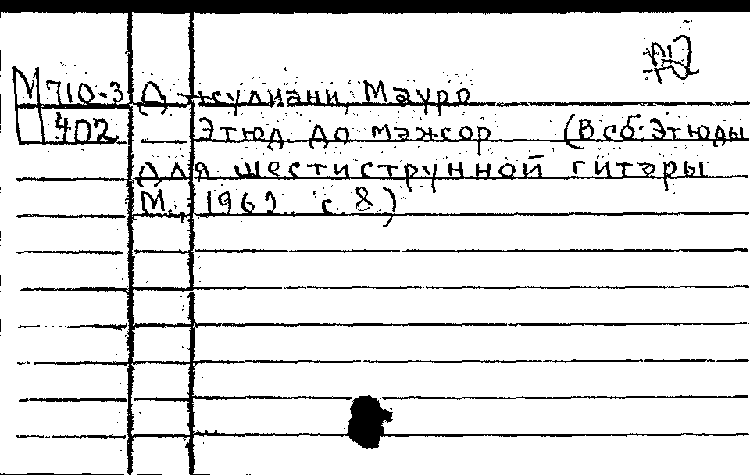 М 710-3 Джулиани, Мауро
402 Этюд до мажор (В сб: Этюды
для шестиструнной гитары
М., 1962. с. 8)